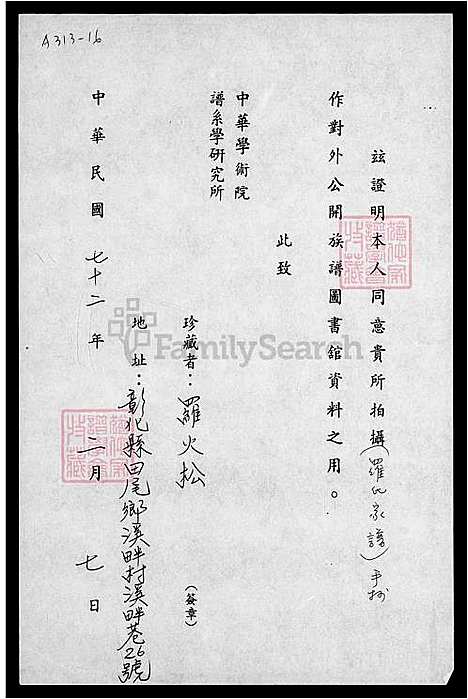 A313-16
茲證明本人同意貴所拍攝(羅氏家譜)手抄
作對外公開族譜圖書館資料之用。
此致
中華學術院
譜系學研究所
珍藏者：羅火松 (簽章)
地址：彰化縣田尾鄉溪畔村溪畔巷26號
中華民國 七十二 年 二月 七日
FamilySearch